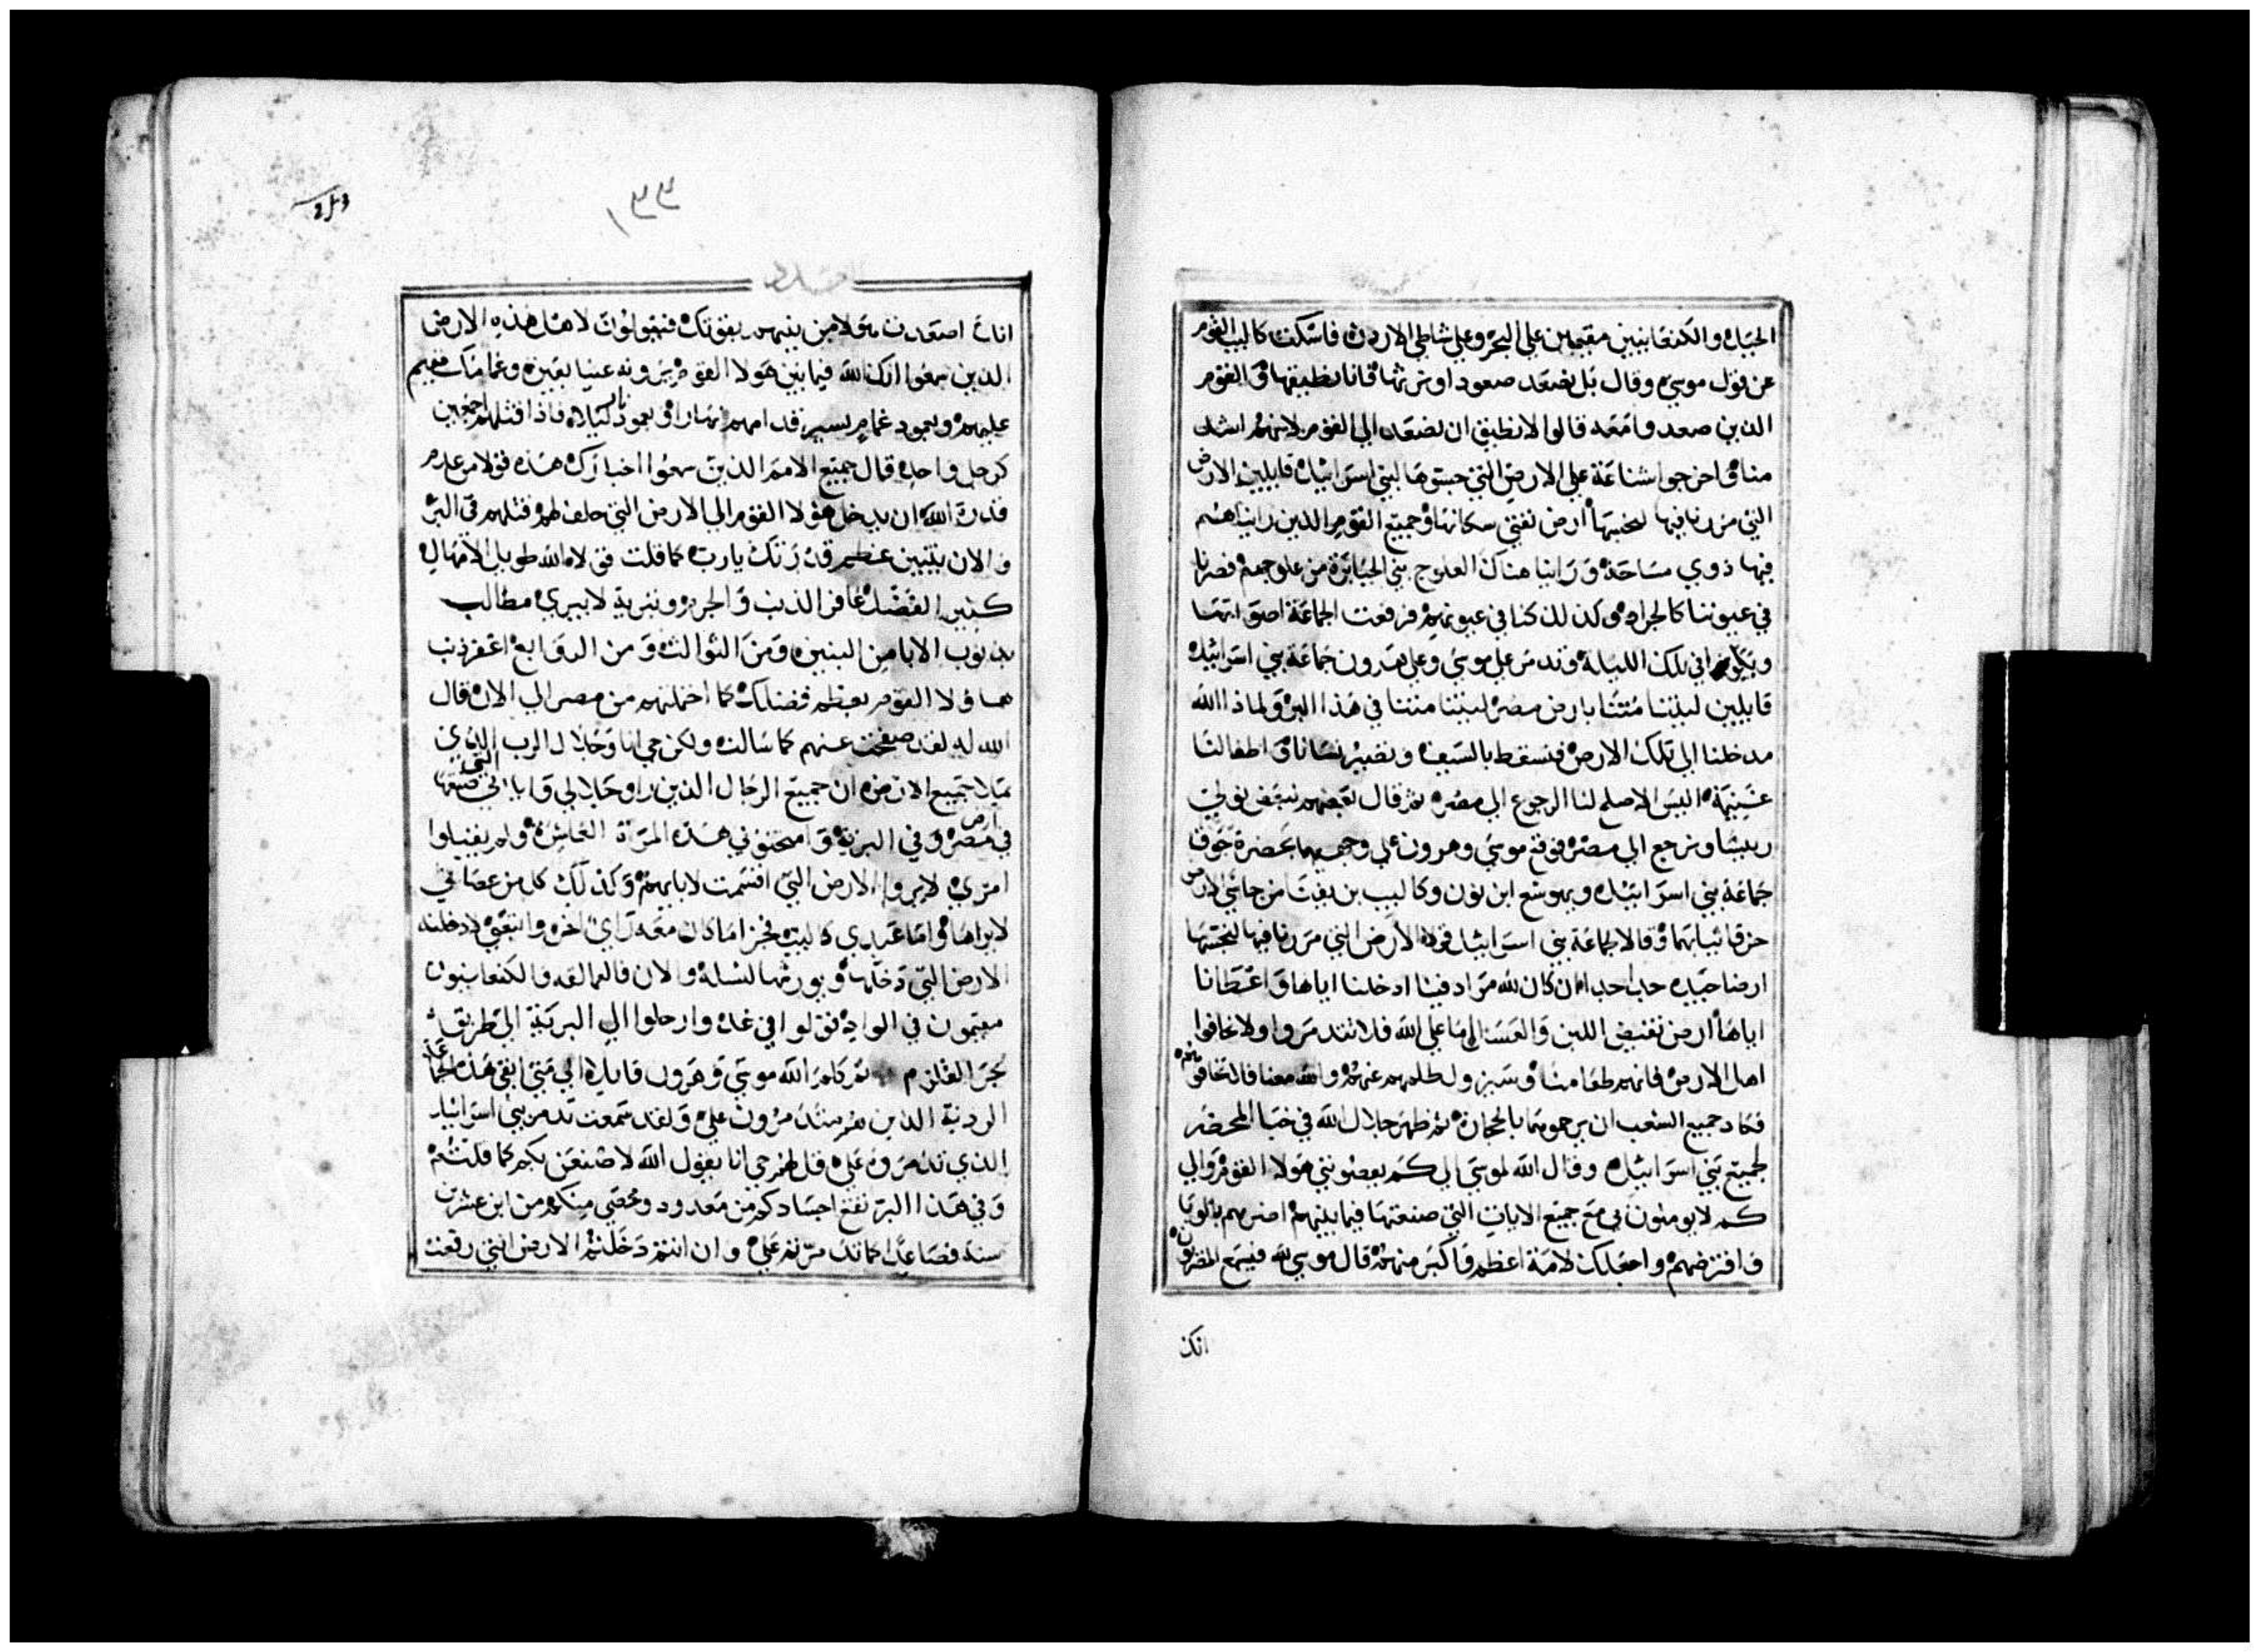 الجبل والكنعانيين مقيمين على البحر وعلى شاطي الاردن فاسكت كالب القوم
عن قول موسى وقال بل نصعد صعود او نرثها فانا نطيقها والقوم
الذين صعدوا معه قالوا لا نطيق ان نصعد الى القوم لانهم اشد
منا واخرجوا شناعة على الارض التي جسوها لبني اسراييل قايلين الارض
التي مررنا فيها لنجسها أرض تفني سكانها وجميع القوم الذين رايناهم
فيها ذوي مساحة وراينا هناك العلوج بني الجبابرة من علوجهم فصرنا
في عيوننا كالجراد وكذلك كنا في عيونهم فرفعت الجماعة اصواتها
وبكوا في تلك الليلة وتدمر على موسى وعلى هرون جماعة بني اسراييل
قايلين ليتنا متنا بارض مصر ليتنا متنا في هذا البر ولماذا الله
مدخلنا الى تلك الارض فنسقط بالسيف وتصير نسانا واطفالنا
غنيمة اليس الاصلح لنا الرجوع الى مصر ثم قال بعضهم لبعض نولي
ريسا ونرجع الى مصر فوقع موسى وهرون على وجههما بحضرة جوق
جماعة بني اسراييل ويهوشع ابن نون وكالب بن يفنا من جاسي الارض
خرقا ثيابهما وقالا لجماعة بني اسراييل قولا الارض التي مررنا فيها لنجسها
ارضا جيده جدا جدا ان كان لله مراد فينا ادخلنا اياها واعطانا
اياها أرض تفيض اللبن والعسل اما على الله فلا تتدمروا ولا تخافوا
اهل الارض فانهم طعامنا وسيزول ظلهم عنهم والله معنا فلا تخافوهم
فكاد جميع الشعب ان يرجموهما بالحجارة ثم ظهر جلال الله في خبا المحضر
لجميع بني اسراييل وقال الله لموسى الى كم يعصونني هولا القوم والى
كم لا يومنون بي مع جميع الايات التي صنعتها فيما بينهم اضربهم بالوبا
وافترضهم واجعلك لامة اعظم واكبر منهم قال موسى لله فيسمع المصريون
انك
١٣٣
انك اصعدت هولا من بينهم بقوتك فيقولون لاهل هذه الارض
الذين سمعوا انك الله فيما بين هولا القوم يرونه عينا بعين وغمامك مقيم
عليهم وبعمود غمام يسير قدامهم نهارا وبعمود نار ليلا فاذا قتلتهم اجمعين
كرجل واحد قال جميع الامم الذين سمعوا اخبارك هذه قولا من عدم
قدرة الله ان يدخل هولا القوم الى الارض التي حلف لهم قتلهم في البر
والان يتبين عظم قدرتك يارب كما قلت قولا الله طويل الامهال
كثير الفضل غافر الذنب والجرم وتبرية لا يبري مطالب
بذنوب الابا من البنين ومن الثوالث ومن الروابع اغفر ذنب
هاولا القوم بعظم فضلك كما احملتهم من مصر الى الان قال
الله له لقد صفحت عنهم كما سالت ولكن حي انا وجلال الرب الذي
يملا جميع الارض ان جميع الرجال الذين راو جلالي واياتي التي صنعتها
في ارض مصر وفي البرية وامتحنوني هذه المرة العاشرة ولم يقبلوا
امري لا يروا الارض التي اقسمت لابايهم وكذلك كل من عصاني
لا يراها واما عبدي كالب فجزا ما كان معه راي اخر واتبعني ادخلته
الارض التي دخلها ويورثها لنسله والان فالعمالقه والكنعانيون
مقيمون في الوادي تولوا في غد وارحلوا الى البرية الى طريق
بحر القلزم ثم كلم الله موسى وهرون قايلا الى متى ابقي هذه الجماعة
الردية الذين هم متدمرون علي ولقد سمعت تدمر بني اسراييل
الذي تدمروه علي قل لهم حي انا يقول الله لاصنعن بكم كما قلتم
وفي هذا البر تقع اجسادكم من معدود ومحصي منكم من ابن عشرين
سنة فصاعدا كما تدمرتم علي وان انتم دخلتم الارض التي رفعت